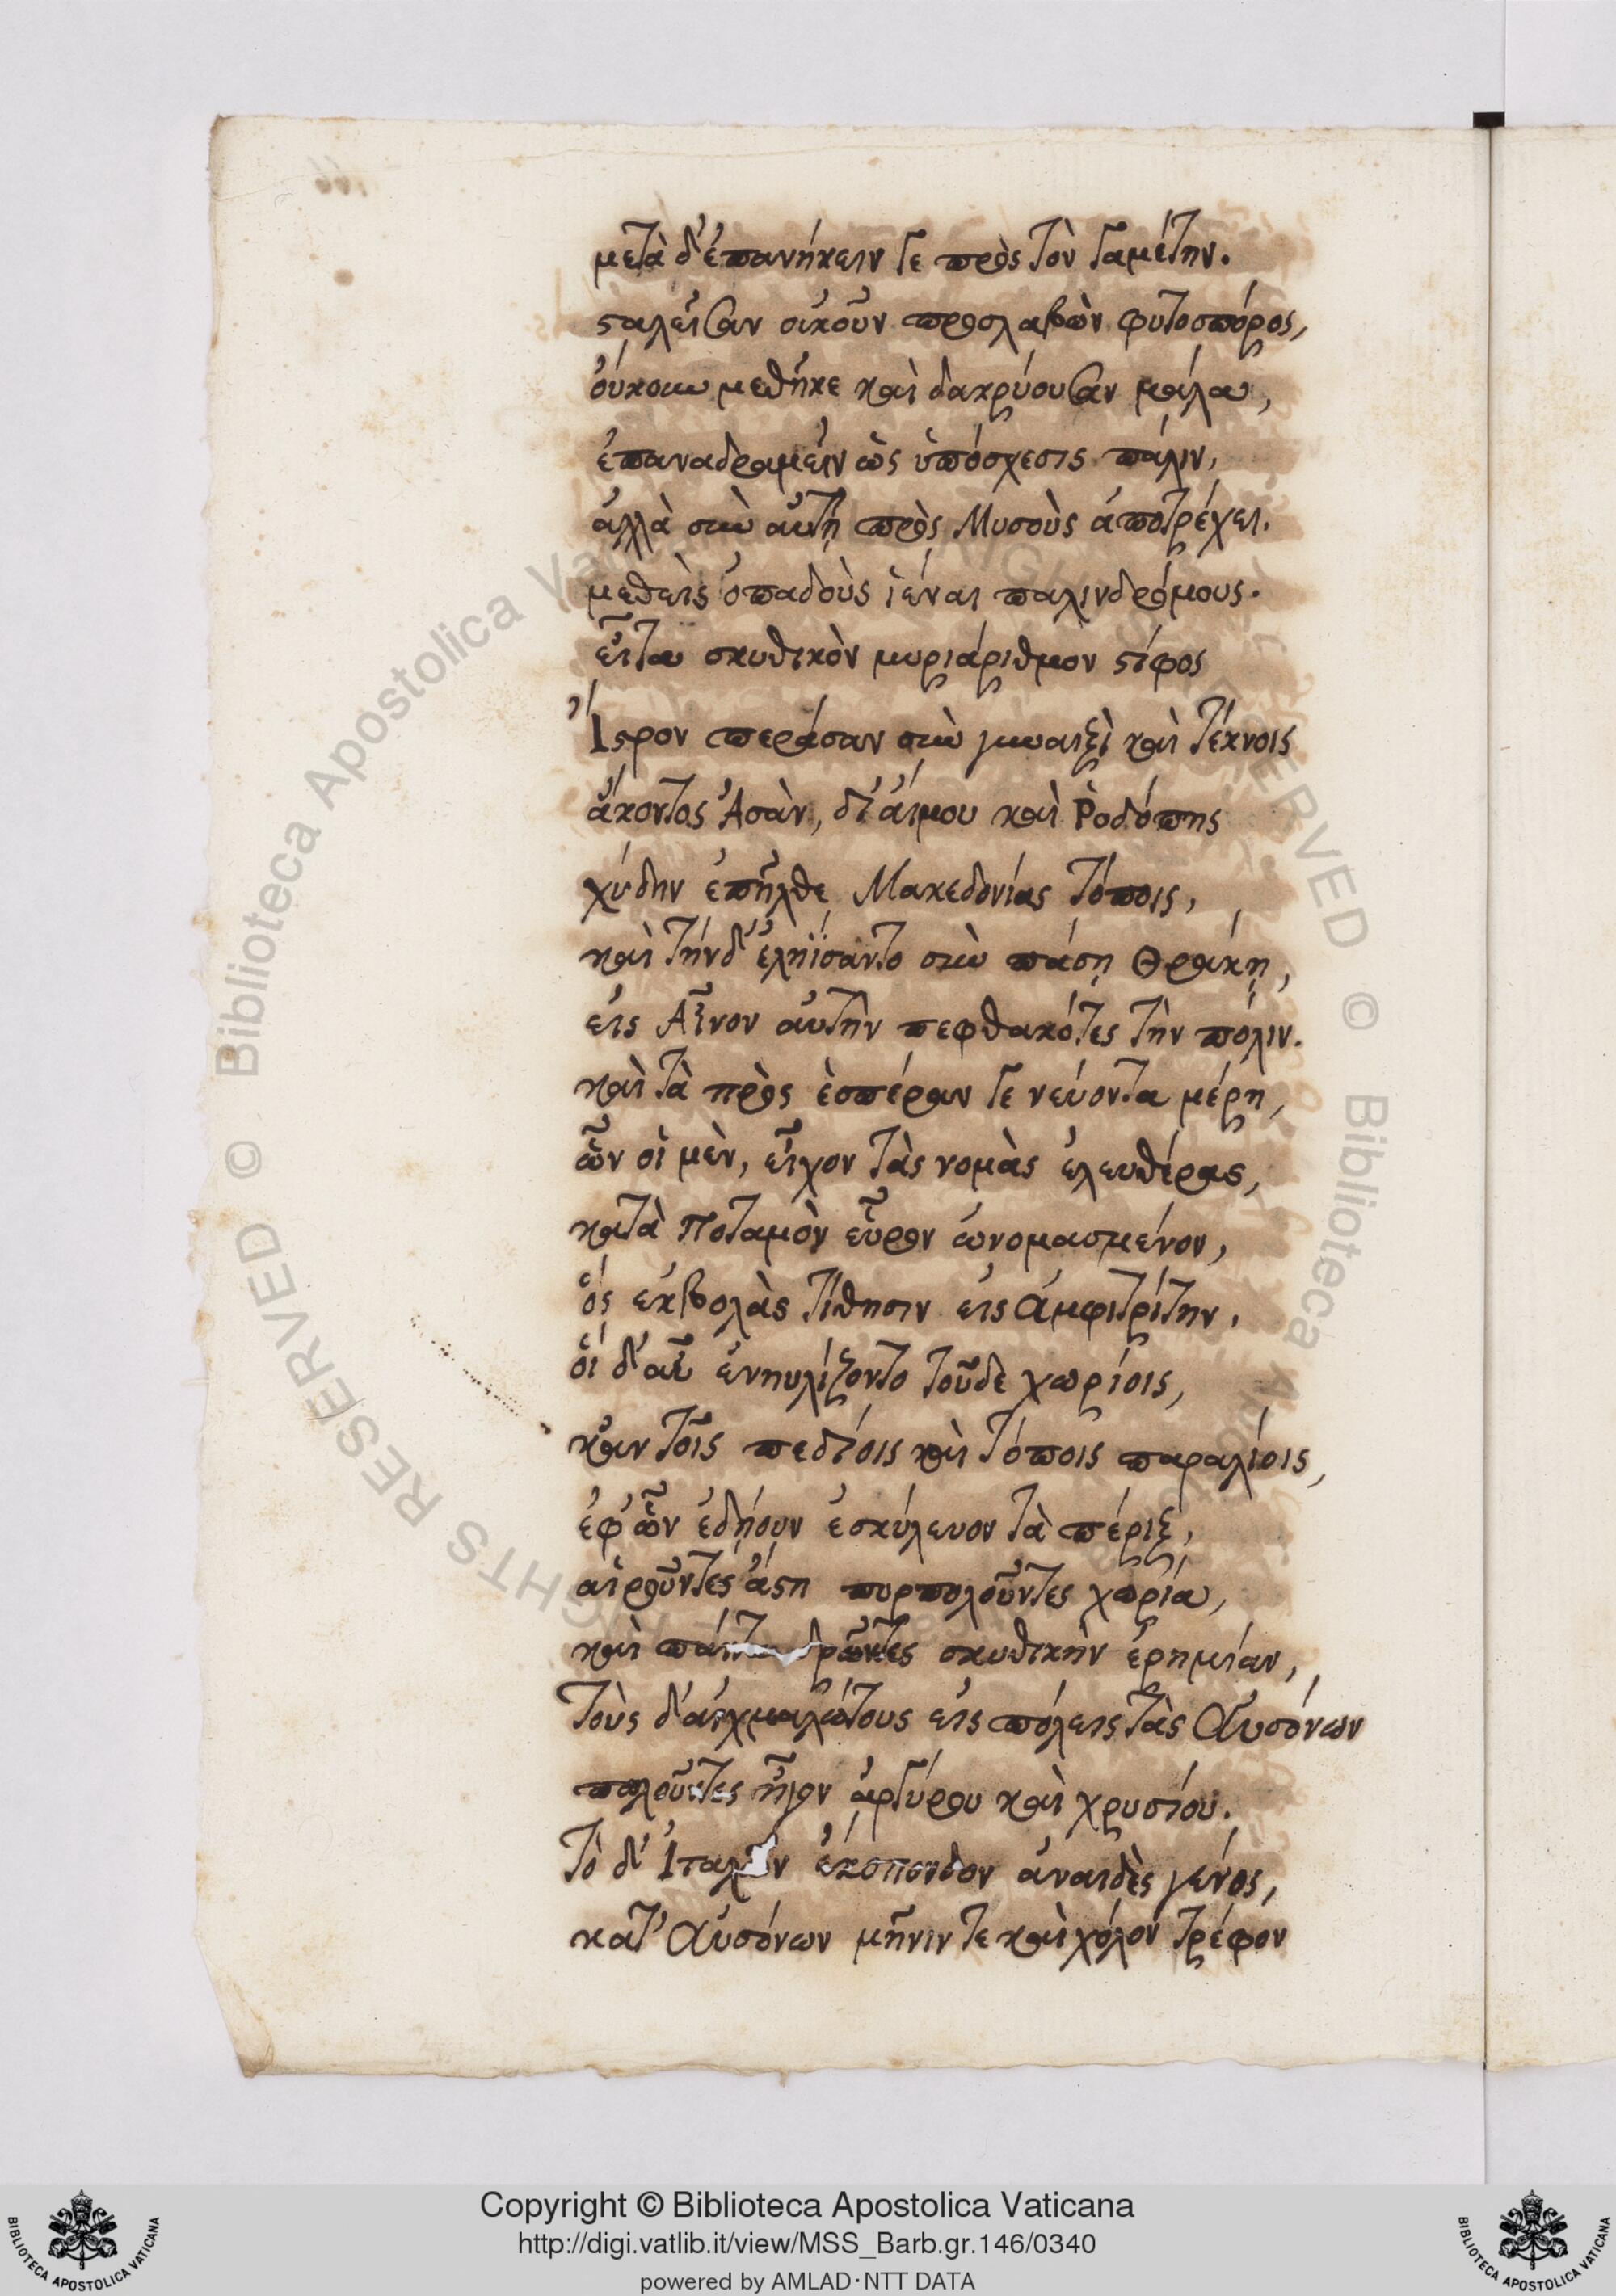 μετὰ δ' ἐπανήκειν γε πρὸς τὸν γαμέτην.
σταλεῖσαν οἰκοῦν προσλαβὼν φυτοσπόρος,
οὐκοῦν μεθῆκε καὶ δακρύουσαν μάλα,
ἐπαναδραμεῖν ὡς ὑπόσχεσις πάλιν,
ἀλλὰ σὺν αὐτῇ πρὸς Μυσοὺς ἀποτρέχει.
μεθεὶς ὀπαδοὺς ἰέναι παλινδρόμους.
εἶτα σκυθικὸν μυριάριθμον στίφος
Ἴστρον περάσαν σὺν γυναιξὶ καὶ τέκνοις
ἄκοντος Ἀσὰν, δι' αἵμου καὶ Ῥοδόπης
χύδην ἐπῆλθε Μακεδονίας τόποις,
καὶ τήνδ' ἐληΐσαντο σὺν πάσῃ Θράκῃ,
εἰς Αἶνον αὐτὴν πεφθακότες τὴν πόλιν.
καὶ τὰ πρὸς ἑσπέραν γε νεύοντα μέρη,
ὧν οἱ μὲν, εἶχον τὰς νομὰς ἐλευθέρας,
κατὰ Ποταμὸν εὗρον ὠνομασμένον,
ὃς ἐκβολὰς τίθησιν εἰς Ἀμφιτρίτην.
οἱ δ' αὖ ἐνηυλίζοντο τοῦδε χωρίοις,
κἂν τοῖς πεδίοις καὶ τόποις παραλίοις,
ἐφ' ὧν ἐδῄουν ἐσκύλευον τὰ πέριξ,
αἱροῦντες ἄστη πυρπολοῦντες χωρία,
καὶ πάντα δρῶντες σκυθικὴν ἐρημίαν,
τοὺς δ' αἰχμαλώτους εἰς πόλεις τὰς Αὐσόνων
πωλοῦντες ἦγον ἀργύρου καὶ χρυσίου.
Τὸ δ' Ἰταλῶν ἔκσπονδον ἀναιδὲς γένος,
κατ' Αὐσόνων μῆνιν τε καὶ χόλον τρέφον
Copyright © Biblioteca Apostolica Vaticana
http://digi.vatlib.it/view/MSS_Barb.gr.146/0340
powered by AMLAD·NTT DATA